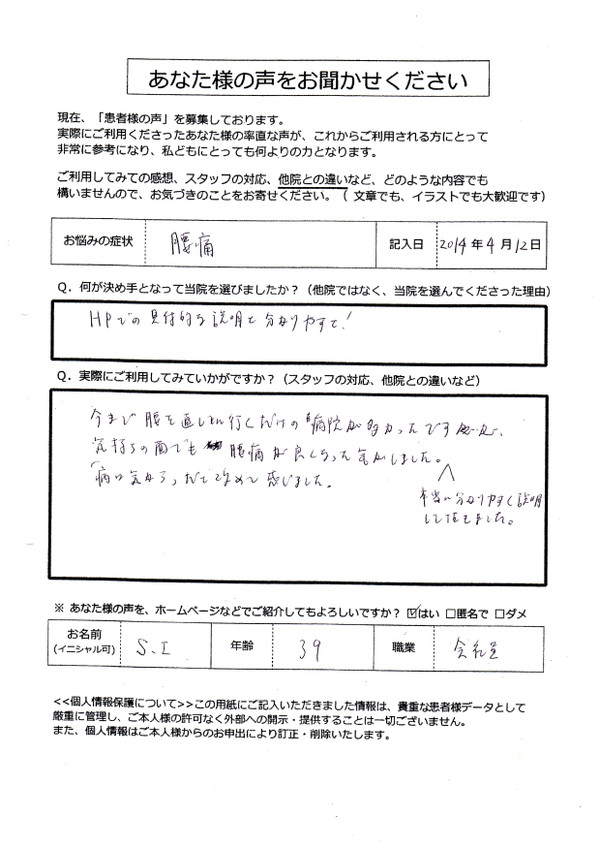 あなた様の声をお聞かせください
現在、「患者様の声」を募集しております。
実際にご利用くださったあなた様の率直な声が、これからご利用される方にとって
非常に参考になり、私どもにとっても何よりの力となります。
ご利用してみての感想、スタッフの対応、他院との違いなど、どのような内容でも
構いませんので、お気づきのことをお寄せください。（ 文章でも、イラストでも大歓迎です）
お悩みの症状 腰痛 記入日 2014年4月12日
Q．何が決め手となって当院を選びましたか？（他院ではなく、当院を選んでくださった理由）
HPでの具体的な説明で分かりやすく！
Q．実際にご利用してみていかがですか？（スタッフの対応、他院との違いなど）
今まで腰を直しに行くだけの病院が多かったですが、
気持ちの面でも 腰痛が良くなった気がしました。
「病は気から」だと改めて感じました。
本当に分かりやすく説明
して頂きました。
※ あなた様の声を、ホームページなどでご紹介してもよろしいですか？ ☑はい □匿名で □ダメ
お名前 S.I 年齢 39 職業 会社員
(イニシャル可)
<<個人情報保護について>>この用紙にご記入いただきました情報は、貴重な患者様データとして
厳重に管理し、ご本人様の許可なく外部への開示・提供することは一切ございません。
また、個人情報はご本人様からのお申出により訂正・削除いたします。